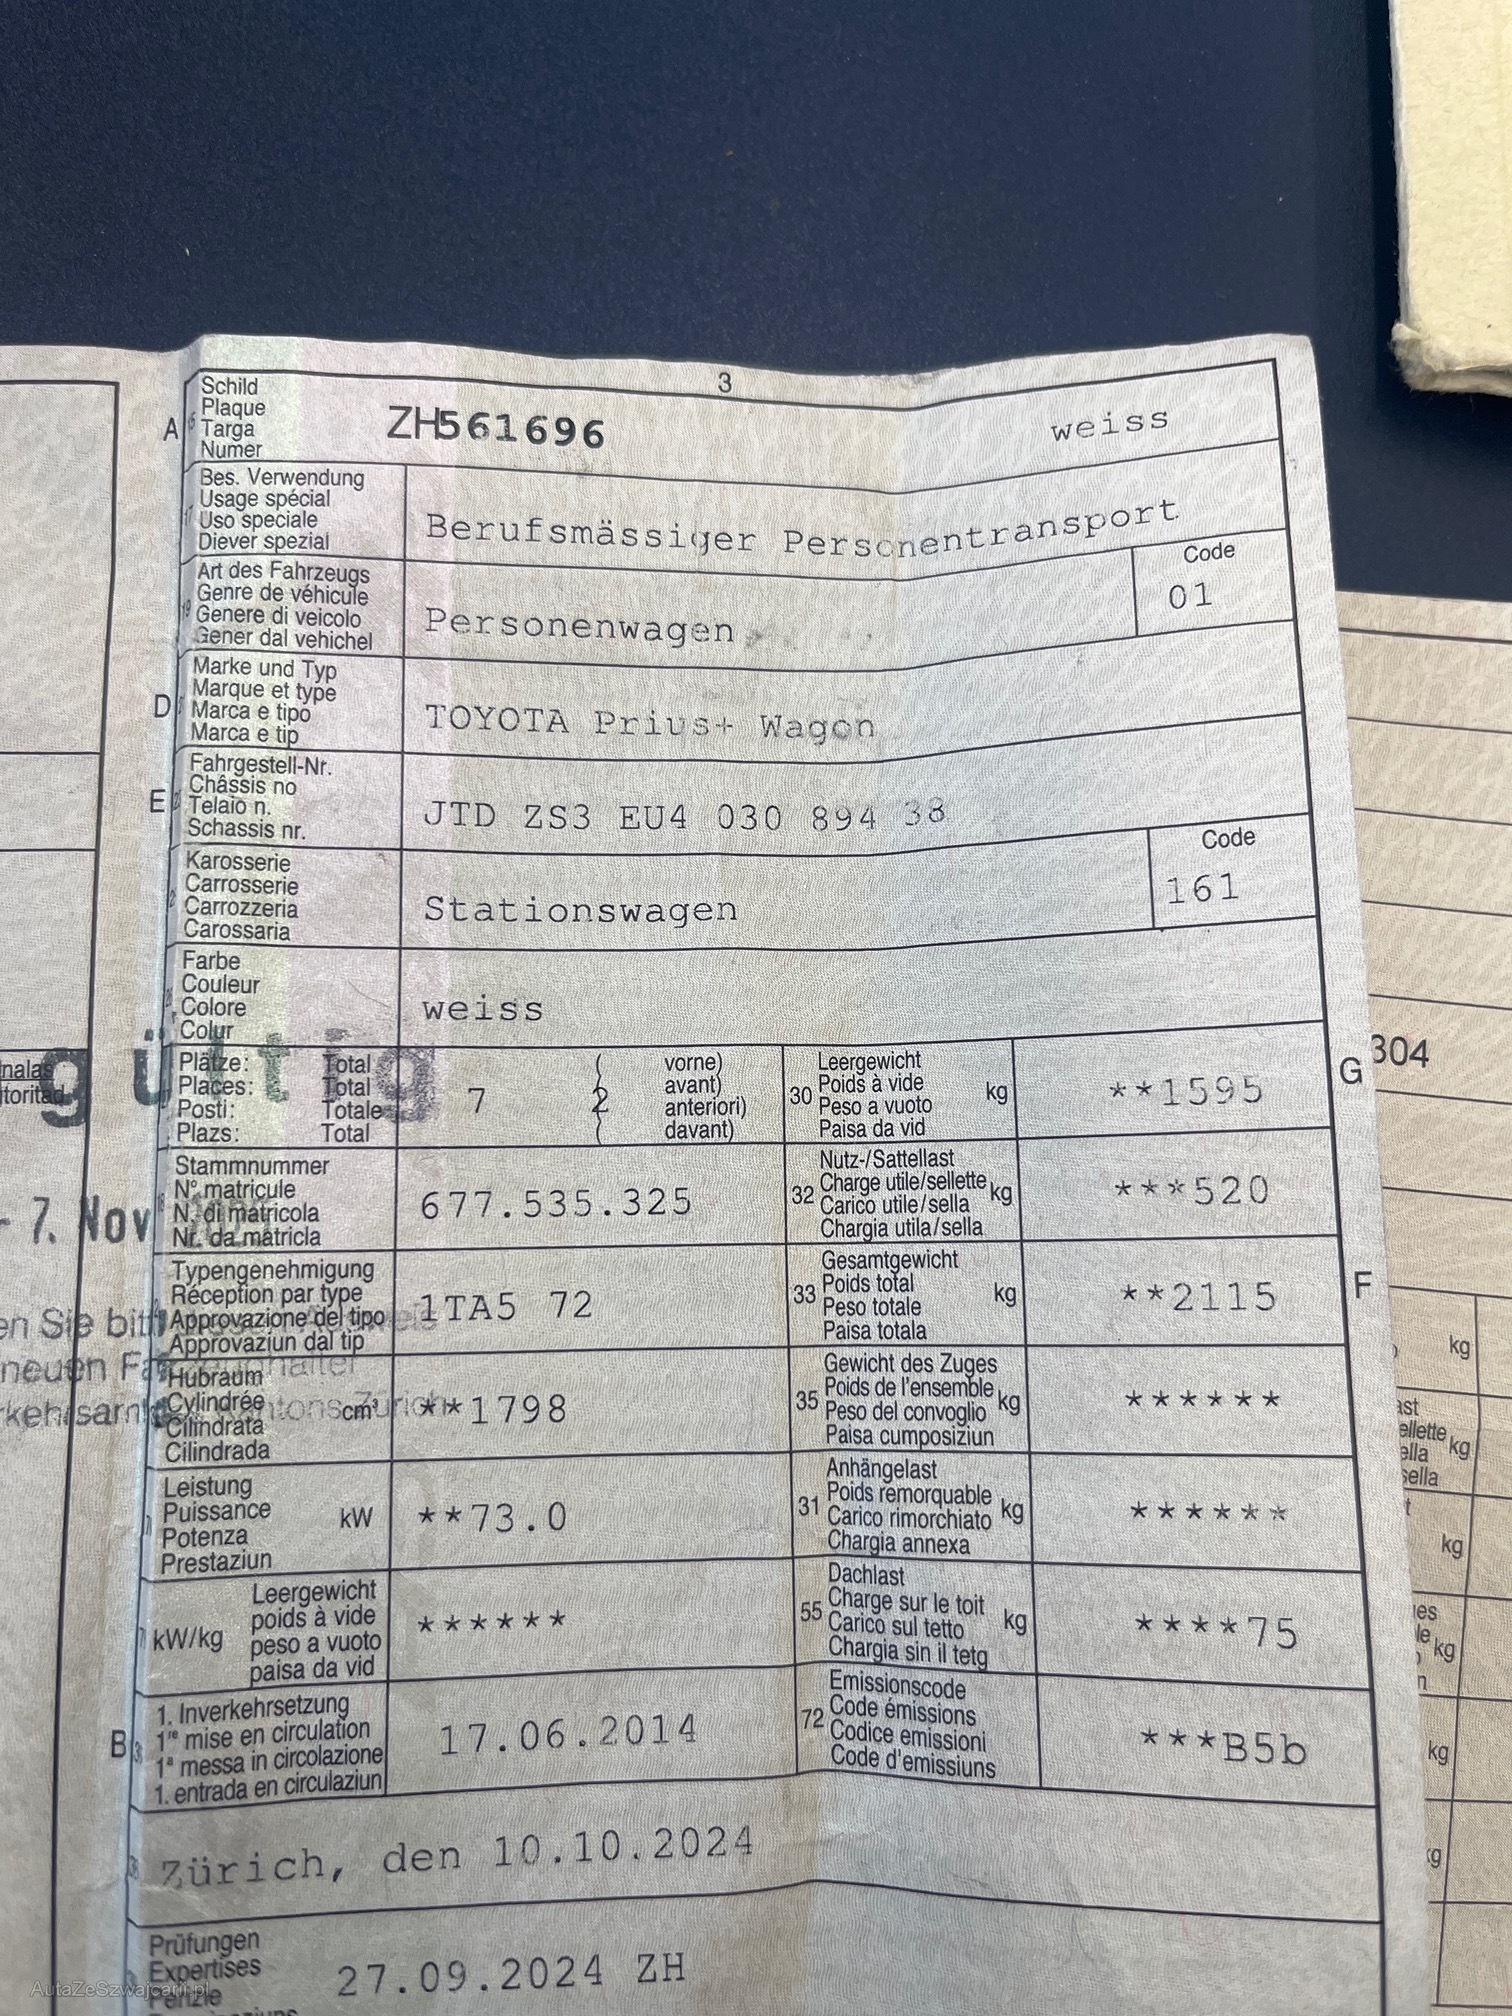 3
A
Schild
Plaque
Targa
Numer
ZH561696
weiss
Bes. Verwendung
Usage spécial
Uso speciale
Diever spezial
Berufsmässiger Personentransport
Art des Fahrzeugs
Genre de véhicule
Genere di veicolo
Gener dal vehichel
Personenwagen
Code
01
D
Marke und Typ
Marque et type
Marca e tipo
Marca e tip
TOYOTA Prius+ Wagon
E
Fahrgestell-Nr.
Châssis no
Telaio n.
Schassis nr.
JTD ZS3 EU4 030 894 38
Karosserie
Carrosserie
Carrozzeria
Carossaria
Stationswagen
Code
161
Farbe
Couleur
Colore
Colur
weiss
gültig
Plätze: Total
Places: Total
Posti: Totale
Plazs: Total
7
2
vorne)
avant)
anteriori)
davant)
30
Leergewicht
Poids à vide
Peso a vuoto
Paisa da vid
kg
**1595
G
304
Stammnummer
N° matricule
N. di matricola
Nr. da matricla
677.535.325
32
Nutz-/Sattellast
Charge utile/sellette
Carico utile/sella
Chargia utila/sella
kg
***520
- 7. Nov
Typengenehmigung
Réception par type
Approvazione del tipo
Approvaziun dal tip
1TA5 72
33
Gesamtgewicht
Poids total
Peso totale
Paisa totala
kg
**2115
F
en Sie bitt
neuen
Hubraum
Cylindrée
Cilindrata
Cilindrada
cm³
**1798
35
Gewicht des Zuges
Poids de l'ensemble
Peso del convoglio
Paisa cumposiziun
kg
******
Leistung
Puissance
Potenza
Prestaziun
kW
**73.0
31
Anhängelast
Poids remorquable
Carico rimorchiato
Chargia annexa
kg
******
kW/kg
Leergewicht
poids à vide
peso a vuoto
paisa da vid
******
55
Dachlast
Charge sur le toit
Carico sul tetto
Chargia sin il tetg
kg
****75
B
1. Inverkehrsetzung
1re mise en circulation
1a messa in circolazione
1. entrada en circulaziun
17.06.2014
72
Emissionscode
Code émissions
Codice emissioni
Code d'emissiuns
***B5b
Zürich, den 10.10.2024
Prüfungen
Expertises
Perizie
27.09.2024 ZH
kg
ellette kg
ella
sella
kg
kg
kg
kg
AutaZeSzwajcarii.pl